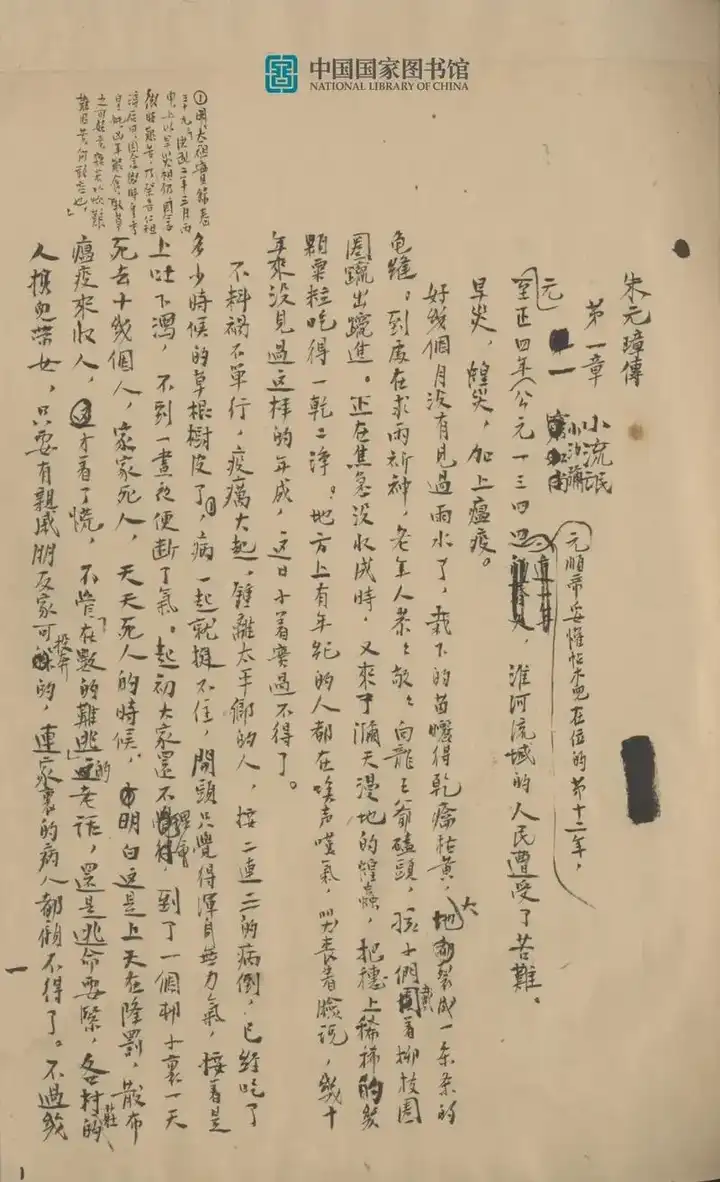 中国国家图书馆
NATIONAL LIBRARY OF CHINA
朱元璋傳
第一章 小流氓
小沙彌
元順帝妥懽帖木兒在位的第十二年，
元至正四年（公元一三四四，淮河流域的人民遭受了苦難。
旱災，蝗災，加上瘟疫。
好幾個月沒有見過雨水了，栽下的苗曬得乾癟枯黃，大地裂成一条条的
龜縫。到處在求雨祈神，老年人恭々敬々向龍王爺磕頭，孩子們戴着柳枝圈
圈竄出竄進。正在焦急沒收成時，又來了滿天漫地的蝗蟲，把穗上稀稀的幾
顆粟粒吃得一乾二淨。地方上有年紀的人都在唉声嘆氣，哭喪着臉說，幾十
年來沒見過這样的年成，這日子着實過不得了。
不料禍不單行，疫癘大起，鍾離太平鄉的人，接二連三的病倒，已經吃了
多少時候的草根樹皮了①，病一起就挺不住，開頭只覺得渾身無力氣，接着是
上吐下瀉，不到一晝夜便断了氣。起初大家還不理會，到了一個村子裏一天
死去十幾個人，家家死人，天天死人的時候，明白這是上天在降罰，散布
瘟疫來收人，才着了慌，不管「在數的難逃」的老话，還是逃命要緊，各村莊的
人携兒帶女，只要有親戚朋友家可投奔的，連家裏的病人都顧不得了。不過幾
一
①明太祖實錄卷
三十九：洪武二年三月丙
申，上以旱災相仍，因念
微時艱苦，乃祭告仁祖
淳后曰：因念微時
皇妣凶年艱食，取草
之可茹者雜米以炊，艱
難困苦，何敢忘也。」
1